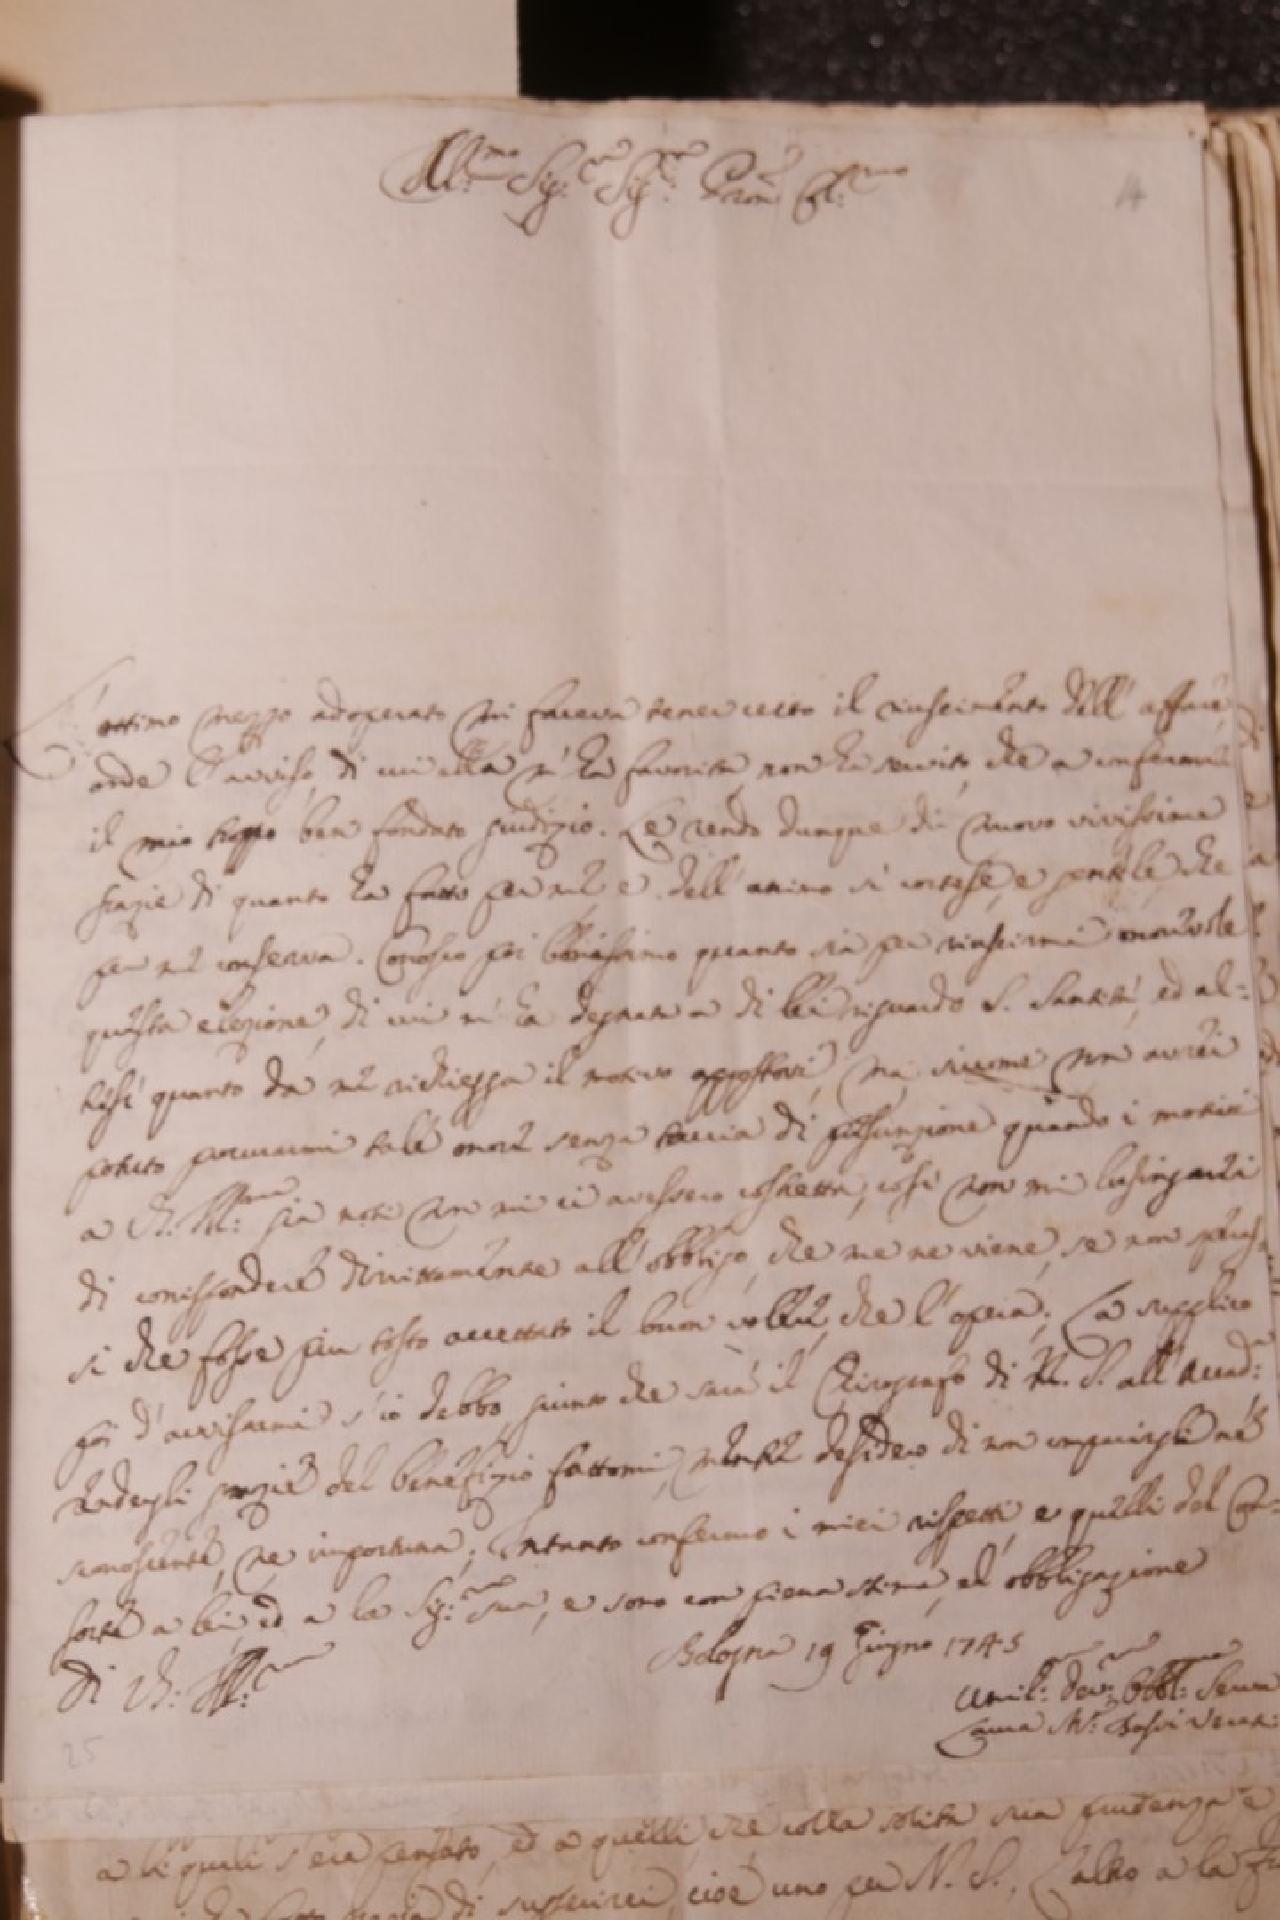 Ill:mo Sig:r Sig:r Pron Col:mo
14
L'ottimo mezzo adoperato mi faceva tener certo il riuscimento dell'affare,
onde l'avviso, di cui ella m'ha favorita, non ha servito, che a confermare
il mio troppo ben fondato giudizio. Le rendo dunque di nuovo vivissime
grazie di quanto ha fatto per me, e dell'animo sì cortese, e gentile, che
per me conserva. Conosco poi benissimo quanto sia per riuscirmi onorevole
questa elezione, di cui m'ha degnata a di lei riguardo S. Santità, ed al-
tresì quanto da me richiegga il motivo appostovi; ma siccome non avrei
potuto procurarmi tale onore senza taccia di presunzione quando i motivi
a V.S. Ill:ma già noti non mi ci avessero costretta, così non mi lusingarei
di corrispondere dirittamente all'obbligo, che me ne viene, se non
si che fosse più tosto accettato il buon volere, che l'opera. La supplico
poi d'avvisarmi s'io debbo, giunto che sarà il Chirografo di N. S. all'Accad:a
rendergli grazie del benefizio fattomi, mentre desidero di non comparirgli né
sconoscente, né importuna; Intanto confermo i miei rispetti, e quelli del Con-
sorte a lei ed a la Sig:ra sua, e sono con piena stima, ed obbligazione
di V.S. Ill:ma
Bologna 19 Giugno 1745
Umil: Dev:ma Obbl:ma Serva
Laura M:a Bassi Verati
25
a li quali s'era pensato, ed a quelli, che colla solita sua prudenza
di suggerirci, cioè uno per N. S., l'altro a la